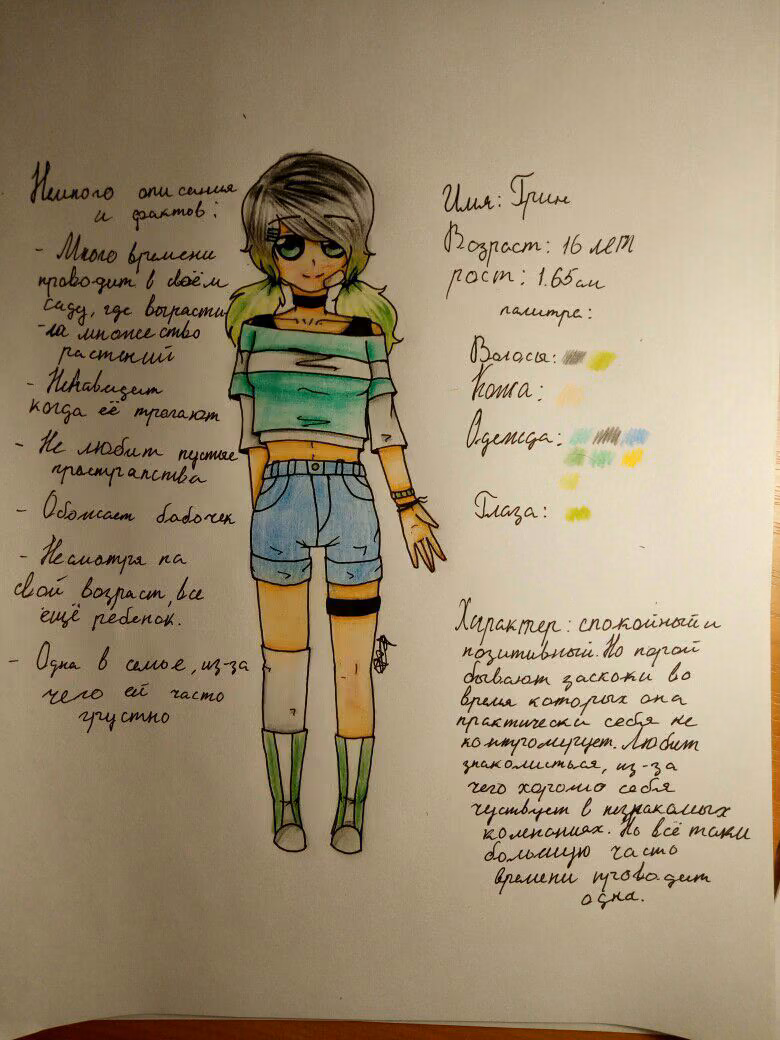 Немного описания
и фактов:
- Много времени
проводит в своём
саду, где вырасти
-ла множество
растений
- Ненавидит
когда её трогают
- Не любит пустые
пространства
- Обожает бабочек
- Несмотря на
свой возраст, все
ещё ребенок.
- Одна в семье, из-за
чего ей часто
грустно
Имя: Грин
Возраст: 16 лет
рост: 1.65см
палитра:
Волосы:
Кожа:
Одежда:
Глаза:
Характер: спокойный и
позитивный. Но порой
бывают заскоки во
время которых она
практически себя не
контролирует. Любит
знакомиться, из-за
чего хорошо себя
чуствует в незнакомых
компаниях. Но всё таки
большую часть
времени проводит
одна.